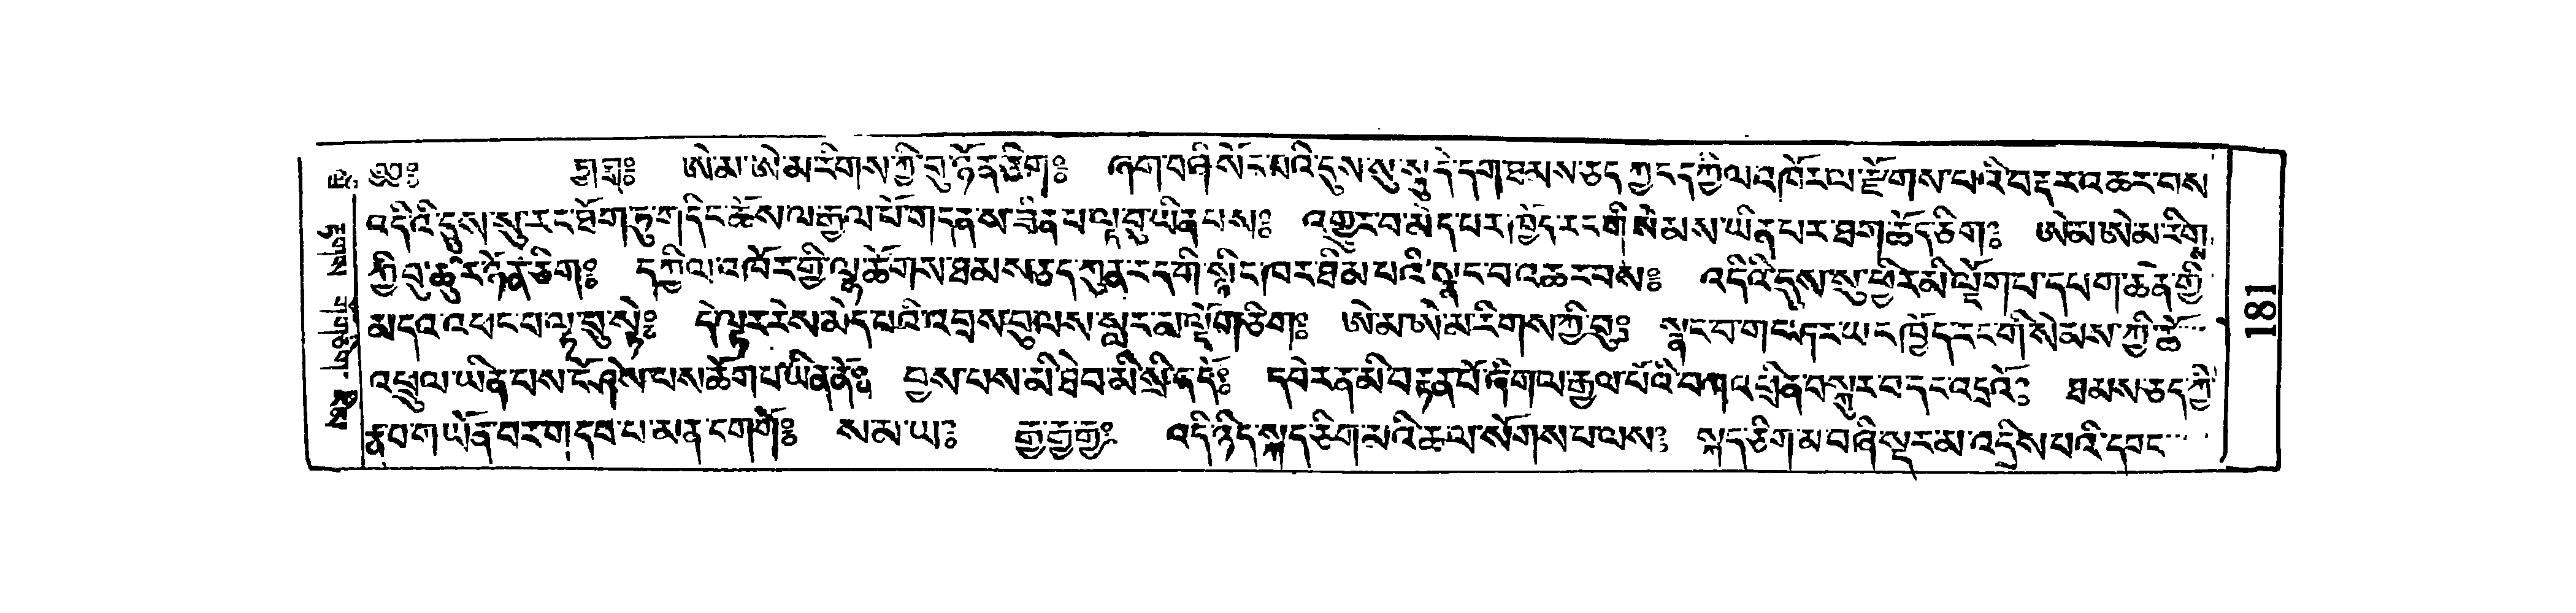 ༄༅༔ རྒྱ་རྒྱ༔ ཨེ་མ་ཨེ་མ་རིགས་ཀྱི་བུ་ཉོན་ཅིག༔ ཞག་བཞི་སོང་མའི་དུས་སུ་སྐུ་དེ་དག་ཐམས་ཅད་ཀྱང་དཀྱིལ་འཁོར་ལ་རྫོགས་པའི་བརྡར་འཆར་བས
འདི་འི་དུས་སུ་རང་ཐོག་ཏུ་གདིང་ཆོས་ལ་རྒྱལ་པོ་གདན་ས་ཟིན་པ་ལྟ་བུ་ཡིན་པས༔ འགྱུར་བ་མེད་པར་ཁྱོད་རང་གི་སེམས་ཡིན་པར་ཐག་ཆོད་ཅིག༔ ཨེ་མ་ཨེ་མ་རིགས
ཀྱི་བུ་ཚུར་ཉོན་ཅིག༔ དཀྱིལ་འཁོར་གྱི་ལྷ་ཚོགས་ཐམས་ཅད་ཀུན་རང་གི་སྙིང་ཁར་ཐིམ་པའི་སྣང་བ་འཆར་བས༔ འདི་འི་དུས་སུ་ཕྱིར་མི་ལྡོག་པ་དཔག་ཆེན་གྱི
མདའ་འཕང་བ་ལྟ་བུ་སྟེ༔ དེ་ལྟར་རེས་མེད་པའི་འབྲས་བུ་ལས་སླར་མ་ལྡོག་ཅིག༔ ཨེ་མ་ཨེ་མ་རིགས་ཀྱི་བུ༔ སྣང་བ་གང་ཤར་ཡང་ཁྱོད་རང་གི་སེམས་ཀྱི་ཆོ
འཕྲུལ་ཡིན་པས་ངོ་ཤེས་པས་ཆོག་པ་ཡིན་ནོ༔ བྱས་པས་མི་ཐེབ་མི་སྲིད་དོ༔ དཔེར་ན་མི་བརྟན་པོ་ཞིག་ལ་རྒྱལ་པོའི་བཀའ་ཕྲིན་བསྐུར་བ་དང་འདྲའོ༔ ཐམས་ཅད་ཀྱི
རྣ་བ་གཡོན་བར་གདབ་པ་མན་ངག་གོ༔ ས་མ་ཡ༔ རྒྱ་རྒྱ་རྒྱ༔ འདི་ཉིད་སྐད་ཅིག་མའི་ཆ་ལ་སོགས་པ་ལས༔ སྐད་ཅིག་མ་བཞི་སྔར་མ་འདྲིས་པའི་དབང
181